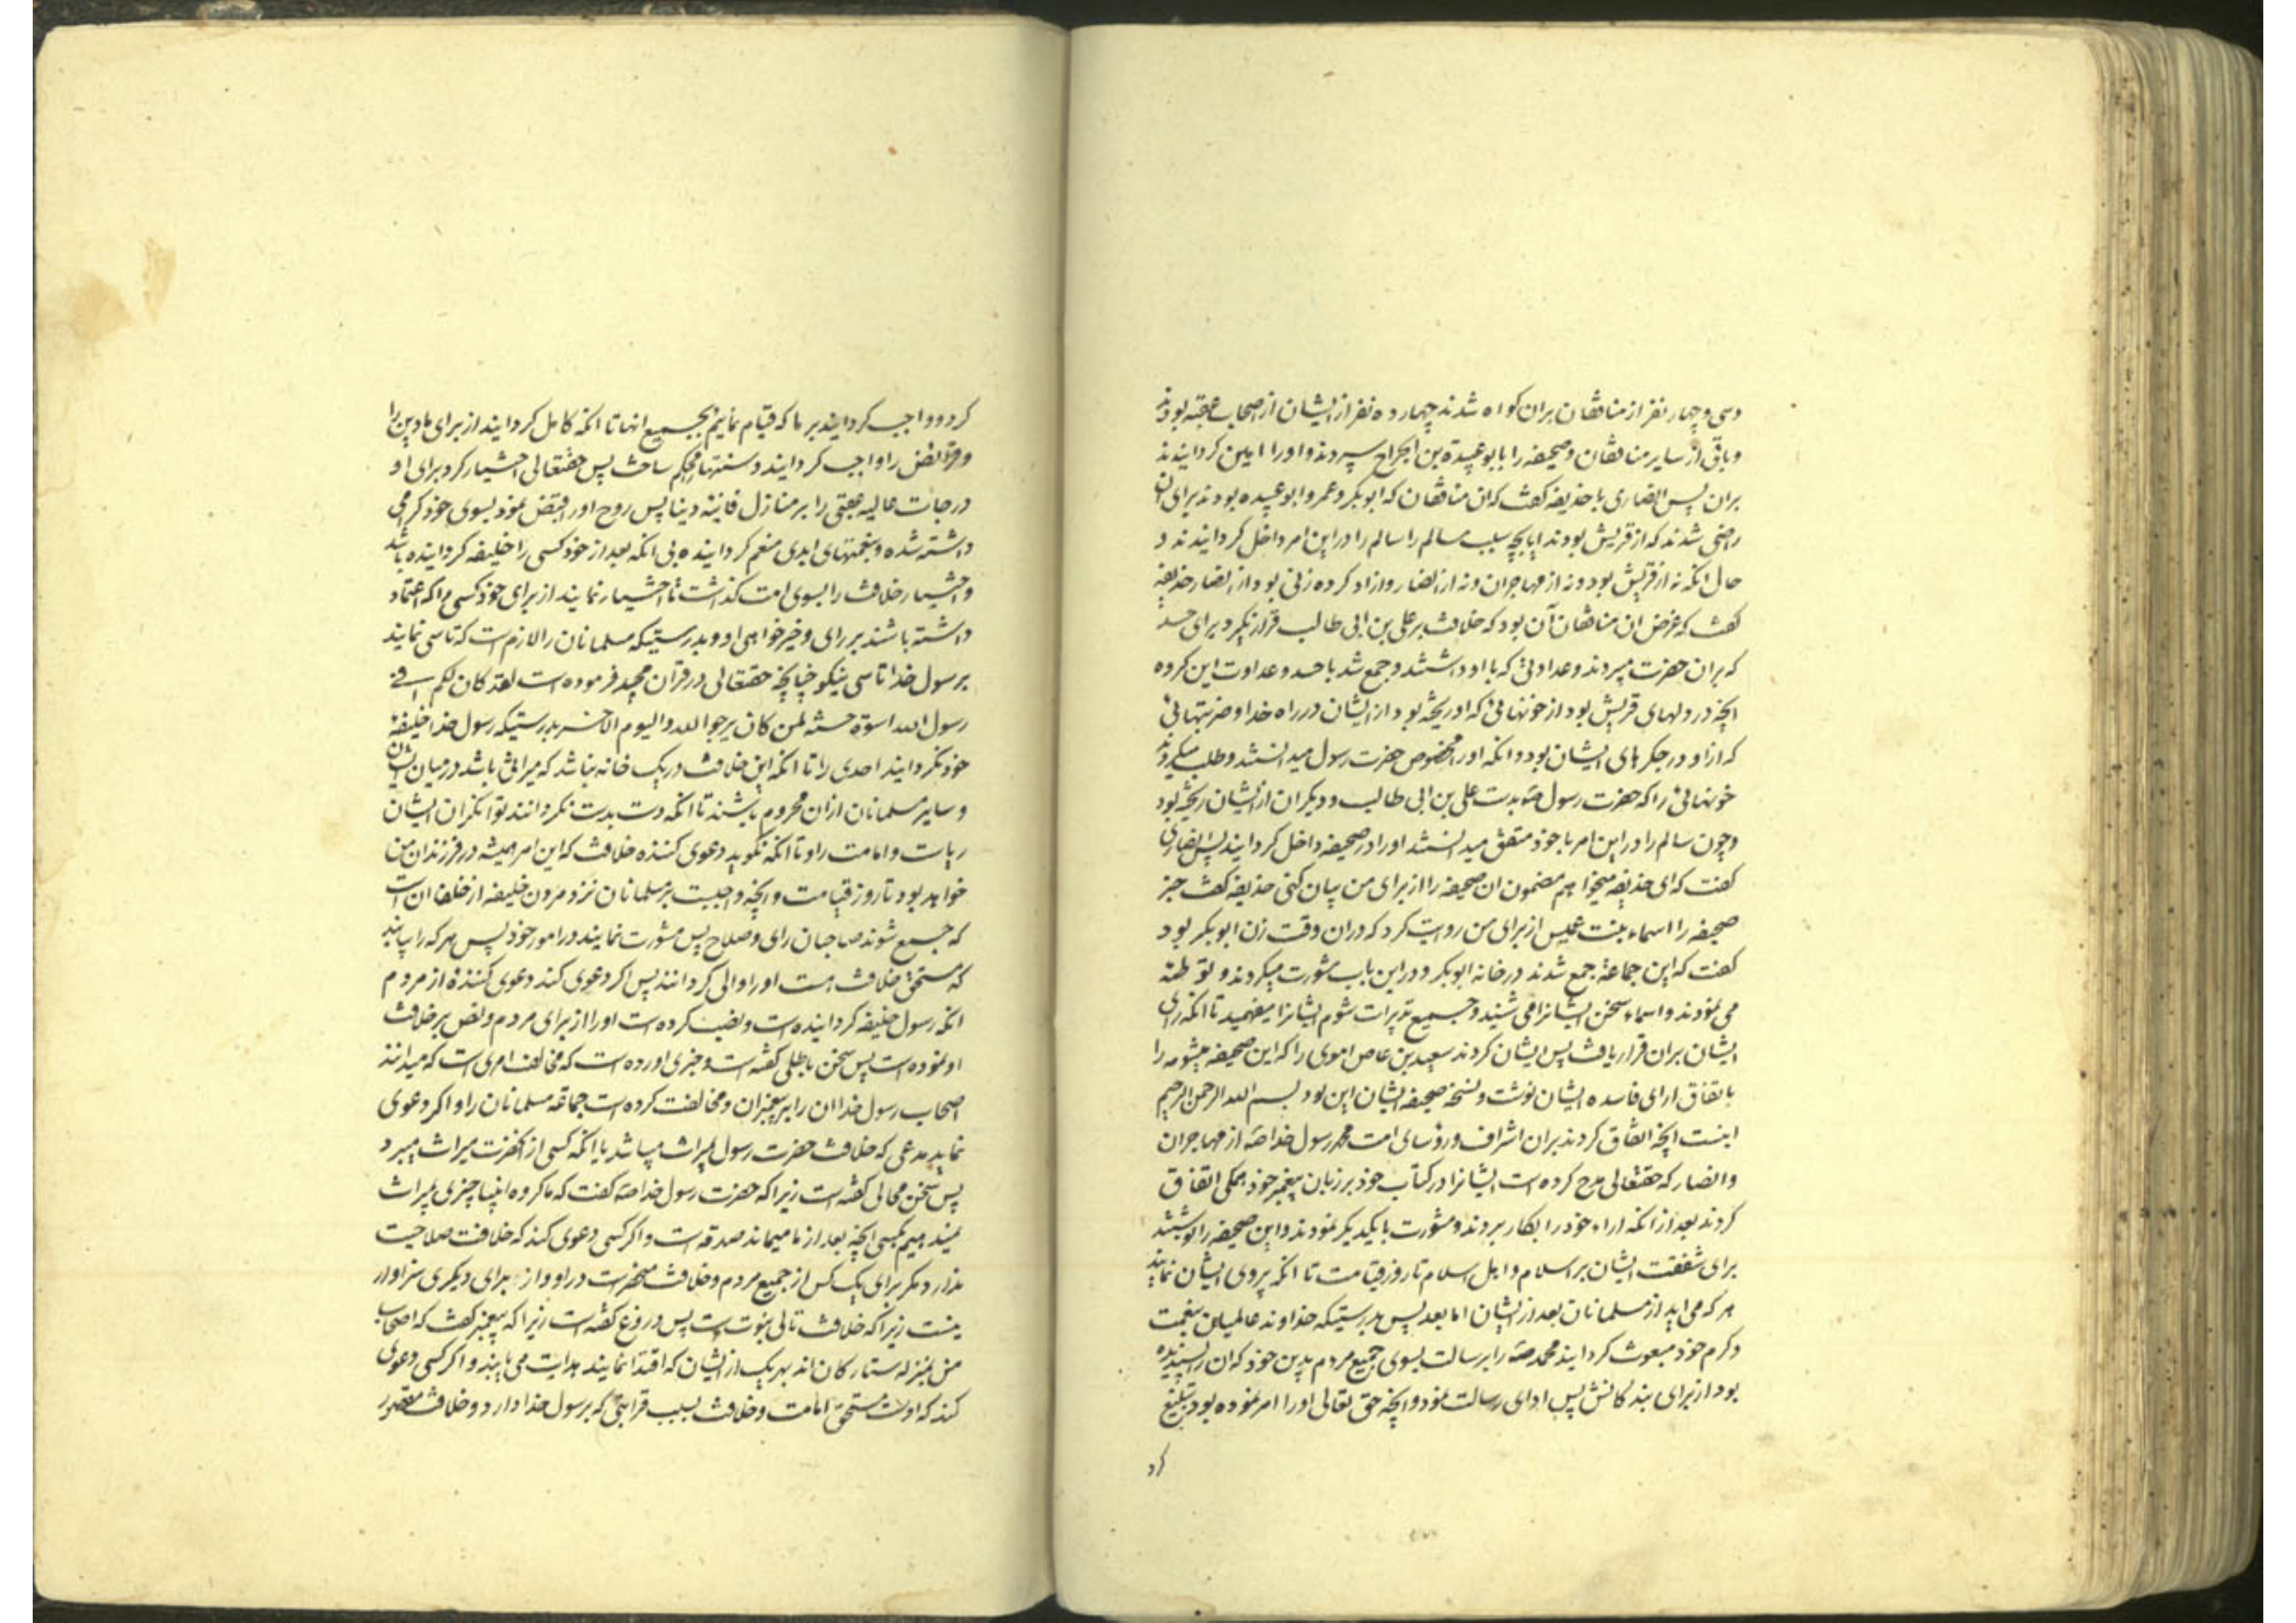 وسی و چهار نفر از منافقان بران کواه شدند چهارده نفر از ایشان از اصحاب عقبه بودند
و باقی از سایر منافقان و صحیفه را بابو عبیدة بن الجراح سپردند و او را امین کردانیدند
بران پس انصاری با حذیفه کفت که ان منافقان که ابوبکر و عمر و ابو عبیده بودند برای ان
راضی شدند که از قریش بودند ایا بچه سبب سالم را سالم را در این امر داخل کردانیدند و
حال انکه نه از قریش بود و نه از مهاجران و نه از انصار و ازاد کرده زنی بود از انصار حذیفه
کفت که غرض ان منافقان آن بود که خلافت بر علی بن ابی طالب قرار نکیرد برای حسد
که بران حضرت میبردند و عداوتی که با او داشتند و جمع شد با حسد و عداوت این کروه
انچه در دلهای قریش بود از خونهائی که او ریخته بود از ایشان در راه خدا و ضربتهائی
که از او در جکرهای ایشان بود و انکه او را مخصوص حضرت رسول میدانستند و طلب میکردند
خونهائی را که حضرت رسول صه بدست علی بن ابی طالب و دیکران از ایشان ریخته بود
و چون سالم را در این امر با خود متفق میدانستند او را در صحیفه داخل کردانیدند پس انصاری
کفت که ای حذیفه میخواهم مضمون ان صحیفه را از برای من بیان کنی حذیفه کفت خبر
صحیفه را اسماء بنت عمیس از برای من روایت کرد که در ان وقت زن ابوبکر بود
کفت که این جماعة جمع شدند در خانه ابوبکر و در این باب مشورت میکردند و توطئه
می نمودند و اسماء سخن ایشانرا می شنید و جمیع تدبیرات شوم ایشانرا میفهمید تا انکه رای
ایشان بران قرار یافت پس ایشان کردند سعید بن عاص اموی را که این صحیفه میشومه را
باتفاق ارای فاسده ایشان نوشت و نسخه صحیفه ایشان این بود بسم الله الرحمن الرحیم
اینست انچه اتفاق کردند بران اشراف و رؤسای امت محمد رسول خدا صه از مهاجران
و انصار که حقتعالی مدح کرده است ایشانرا در کتاب خود بر زبان پیغمبر خود همکی اتفاق
کردند بعد از انکه اراء خود را بکار بردند و مشورت با یکدیکر نمودند و این صحیفه را نوشتند
برای شفقت ایشان بر اسلام و اهل اسلام تا روز قیامت تا انکه پیروی ایشان نمایند
هر که می اید از مسلمانان بعد از ایشان اما بعد پس بدرستیکه خداوند عالمیان بنعمت
و کرم خود مبعوث کردانید محمد صه را برسالت بسوی جمیع مردم بدین خود که ان را پسندیده
بود از برای بندکانش پس ادای رسالت نمود و انچه حق تعالی او را امر نموده بود بتبلیغ
کرد
کرد و واجب کردانید بر ما که قیام نمائیم بجمیع انها تا انکه کامل کردانید از برای ما دین را
و فرایض را واجب کردانید و سنتها را محکم ساخت پس حقتعالی اختیار کرد برای او
درجات عالیه عقبی را بر منازل فانیه دنیا پس روح او را قبض نمود بسوی خود کرامی
داشته شده و بنعمتهای ابدی منعم کردانیده بی انکه بعد از خود کسی را خلیفه کردانیده باشد
و اختیار خلافت را بسوی امت کذاشت تا اختیار نمایند از برای خود کسی را که اعتماد
داشته باشند بر رای و خیرخواهی او و بدرستیکه مسلمانان را لازم است که تاسی نمایند
برسول خدا تاسی نیکو چنانچه حقتعالی در قران مجید فرموده است لقد کان لکم فی
رسول الله اسوة حسنة لمن کان یرجوا الله والیوم الاخر بدرستیکه رسول خدا خلیفه
خود نکردانید احدی را تا انکه این خلافت در یک خانه نباشد که میراثی باشد در میان ایشان
و سایر مسلمانان ازان محروم باشند تا انکه دست بدست نکردانند توانکران ایشان
ریاست و امامت را و تا انکه نکوید دعوی کننده خلافت که این امر همیشه در فرزندان من
خواهد بود تا روز قیامت و انچه واجبست بر مسلمانان نزد مردن خلیفه از خلفا ان است
که جمیع شوند صاحبان رای و صلاح پس مشورت نمایند در امور خود پس هر که را بیابند
که مستحق خلافت هست او را والی کردانند پس اکر دعوی کند دعوی کنندهٔ از مردم
انکه رسول خلیفه کردانیده است و نصب کرده است او را از برای مردم و نص بر خلافت
او نموده است پس سخن باطلی کفته است و خبری اورده است که مخالف امری است که میدانند
اصحاب رسول خدا ان را بر پیغمبران و مخالفت کرده است جماعة مسلمانان را و اکر دعوی
نماید مدعی که خلافت حضرت رسول بمیراث میباشد یا انکه کسی از انحضرت میراث میبرد
پس سخن محالی کفته است زیرا که حضرت رسول خدا صه کفت که ما کروه انبیا چیزی بمیراث
نمیدهیم بکسی انچه بعد از ما میماند صدقه است و اکر کسی دعوی کند که خلافت صلاحیت
ندارد مکر برای یک کس از جمیع مردم و خلافت منحصر است در او و از برای دیکری سزاوار
نیست زیرا که خلافت تالی نبوت است پس دروغ کفته است زیرا که پیغمبر کفت که اصحاب
من بمنزله ستارکان اند بهر یک از ایشان که اقتدا نمایند هدایت می یابند و اکر کسی دعوی
کند که اوست مستحق امامت و خلافت بسبب قرابتی که برسول خدا دارد و خلافت مقصور